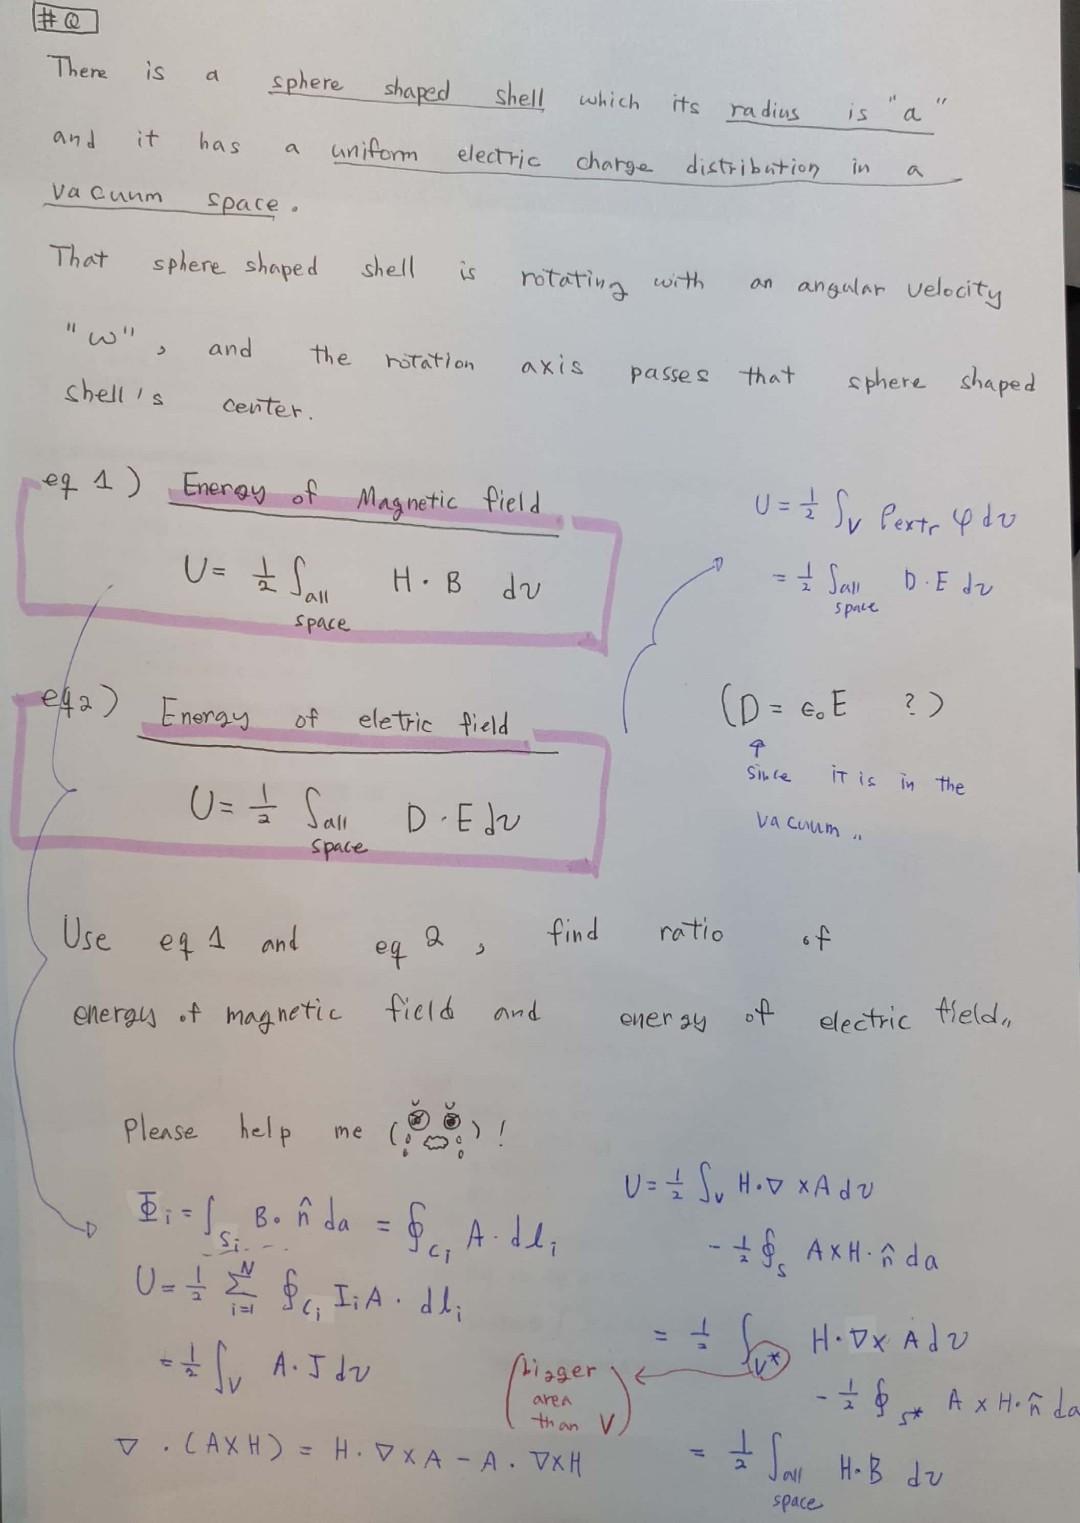 #Q
There is a sphere shaped shell which its radius is "a"
and it has a uniform electric charge distribution in a
vacuum space.
That sphere shaped shell is rotating with an angular velocity
"w", and the rotation axis passes that sphere shaped
shell's center.
eq 1) Energy of Magnetic field
U = 1/2 ∫all space H · B dv
U = 1/2 ∫V ρextr φ dv
= 1/2 ∫all space D · E dv
eq2) Energy of eletric field
U = 1/2 ∫all space D · E dv
(D = ε₀E ?)
↑
since it is in the
vacuum..
Use eq 1 and eq 2, find ratio of
energy of magnetic field and energy of electric field..
Please help me ( )!
Φi = ∫Si B · n̂ da = ∮Ci A · dli
U = 1/2 Σ i=1 N ∮Ci Ii A · dli
= 1/2 ∫V A · J dv
∇ · (A×H) = H · ∇×A − A · ∇×H
U = 1/2 ∫V H · ∇ × A dv
− 1/2 ∮S A×H · n̂ da
= 1/2 ∫V* H · ∇× A dv
(bigger area than V)
− 1/2 ∮S* A × H · n̂ da
= 1/2 ∫all space H · B dv